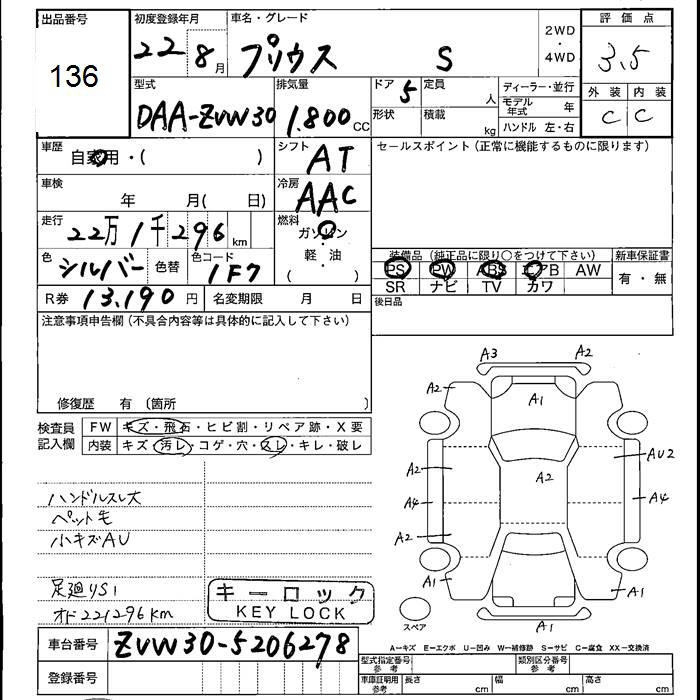 出品番号 初度登録年月 車名・グレード 2WD・4WD 評価点
136 22 8月 プリウス S 3.5
型式 排気量 ドア 定員 ディーラー・並行 外装 内装
DAA-ZVW30 1.800CC 5 人 モデル年式 年 C C
形状 積載 kg ハンドル 左・右
車歴 シフト セールスポイント(正常に機能するものに限ります)
自家用・( ) AT
車検 冷房
年 月( 日) AAC
走行 燃料
22万1千296km ガソリン
色 色替 色コード 軽・油
シルバー 1F7 ( )
装備品(純正品に限り○をつけて下さい) 新車保証書
PS PW ABS エアB AW 有・無
SR ナビ TV カワ
R券 13,190円 名変期限 月 日 後日品
注意事項申告欄(不具合内容等は具体的に記入して下さい)
修復歴 有 〔箇所 〕
検査員記入欄 FW キズ・飛石・ヒビ割・リペア跡・X要
内装 キズ・汚レ・コゲ・穴・スレ・キレ・破レ
ハンドルスレ大
ペット毛
小キズAU
足廻りS1
オド221296km
キーロック
KEY LOCK
A3 A2
A2 A1
A2 A2 AU2
A4 A4
A2
A1 A1
A1
スペア
A-キズ E-エクボ U-凹み W-補修跡 S-サビ C-腐食 XX-交換済
車台番号 ZVW30-5206278
登録番号
型式指定番号 参考 類別区分番号 参考
車庫証明用 参考 長さ cm 幅 cm 高さ cm